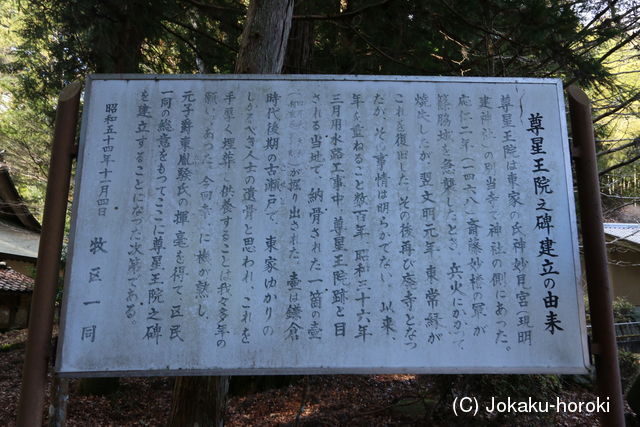 尊星王院之碑建立の由来
尊星王院は東家の氏神妙見宮(現明
建神社)の別当寺で神社の側にあった。
応仁二年(一四六八)斎藤妙椿の軍が
篠脇城を急襲したとき、兵火にかかって
焼失したが、翌文明元年、東常縁が
これを復旧した。その後再び廃寺となっ
たが、その事情は明らかでない。以来
年を重ねること数百年、昭和三十六年
三月用水路工事中、尊星王院跡と目
される当地で、納骨された一箇の壺
が掘り出された。壺は鎌倉
時代後期の古瀬戸で、東家ゆかりの
しかるべき人士の遺骨と思われ、これを
手厚く埋葬し供養することは我々多年の
願いであった。今回幸いに機が熟し、
元子爵東胤駿氏の揮毫を得て、区民
一同の総意をもってここに尊星王院之碑
を建立することになった次第である。
昭和五十四年十一月四日
牧区一同
(C) Jokaku-horoki